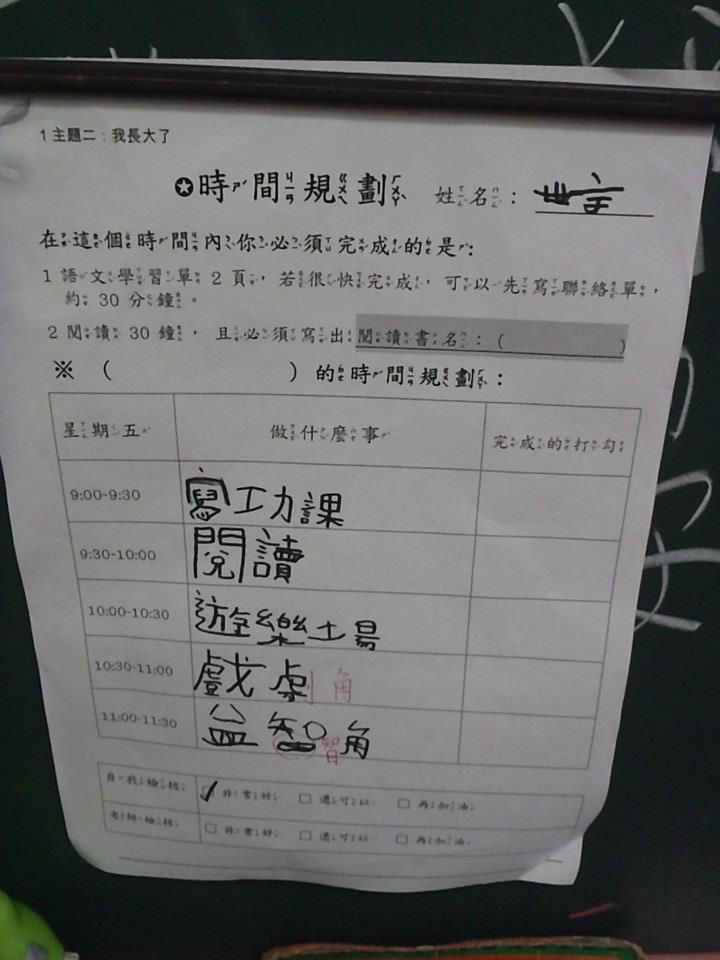 1 主題二：我長大了
✪時間規劃 姓名：
在這個時間內你必須完成的是：
1 語文學習單 2 頁，若很快完成，可以先寫聯絡單，
約 30 分鐘。
2 閱讀 30 鐘，且必須寫出閱讀書名：( )
※ ( ) 的時間規劃：
星期五 做什麼事 完成的打勾
9:00-9:30 寫工功課
9:30-10:00 閱讀
10:00-10:30 遊樂土場
10:30-11:00 戲劇角
11:00-11:30 益智角
智
自我檢核 ☑ 非常好 □ 還可以 □ 再加油
老師檢核 □ 非常好 □ 還可以 □ 再加油